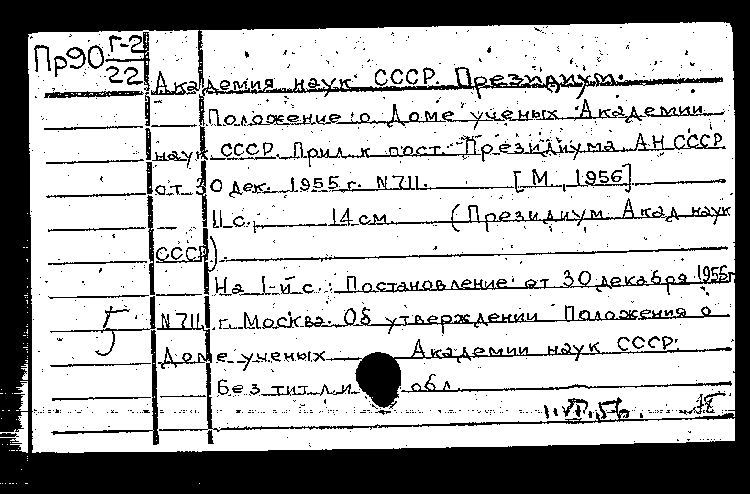 Пр90 Г-2
22
Академия наук СССР. Президиум.
Положение о Доме ученых Академии
наук СССР. Прил. к пост. Президиума АН СССР
от 30 дек. 1955 г. N 711. [М., 1956]
11 с., 14 см. (Президиум Акад. наук
СССР).
На 1-й с.: Постановление от 30 декабря 1955г
N 711 г. Москва. Об утверждении Положения о
Доме ученых Академии наук СССР.
5
Без тит. л. и обл.
1.VI.56.